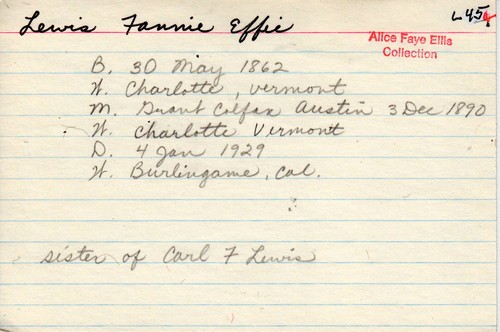 L45g
Lewis Fannie Effie
Alice Faye Ellis
Collection
B. 30 May 1862
W. Charlotte, Vermont
M. Grant Colfax Austin 3 Dec 1890
W. Charlotte Vermont
D. 4 Jan 1929
W. Burlingame, Cal.
sister of Carl F Lewis